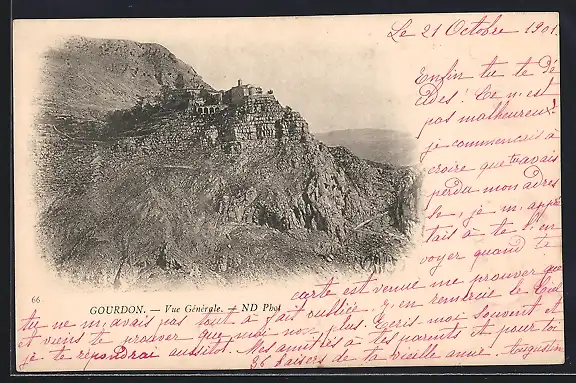 Le 21 Octobre 1901.
Enfin tu te dé
cides! Ce n'est
pas malheureux!
je commençais à
croire que t'avais
perdu mon adres
se, je m'apprê
tais à te l'en
voyer quand te
carte est venue me prouver que
tu ne m'avais pas tout à fait oubliée. J'en remercie le Ciel
et viens te prouver que moi non plus. Ecris moi souvent et
je te répondrai aussitôt. Mes amitiés à tes parents et pour toi
36 baisers de ta vieille amie. Augustine
66
GOURDON. — Vue Générale. — ND Phot